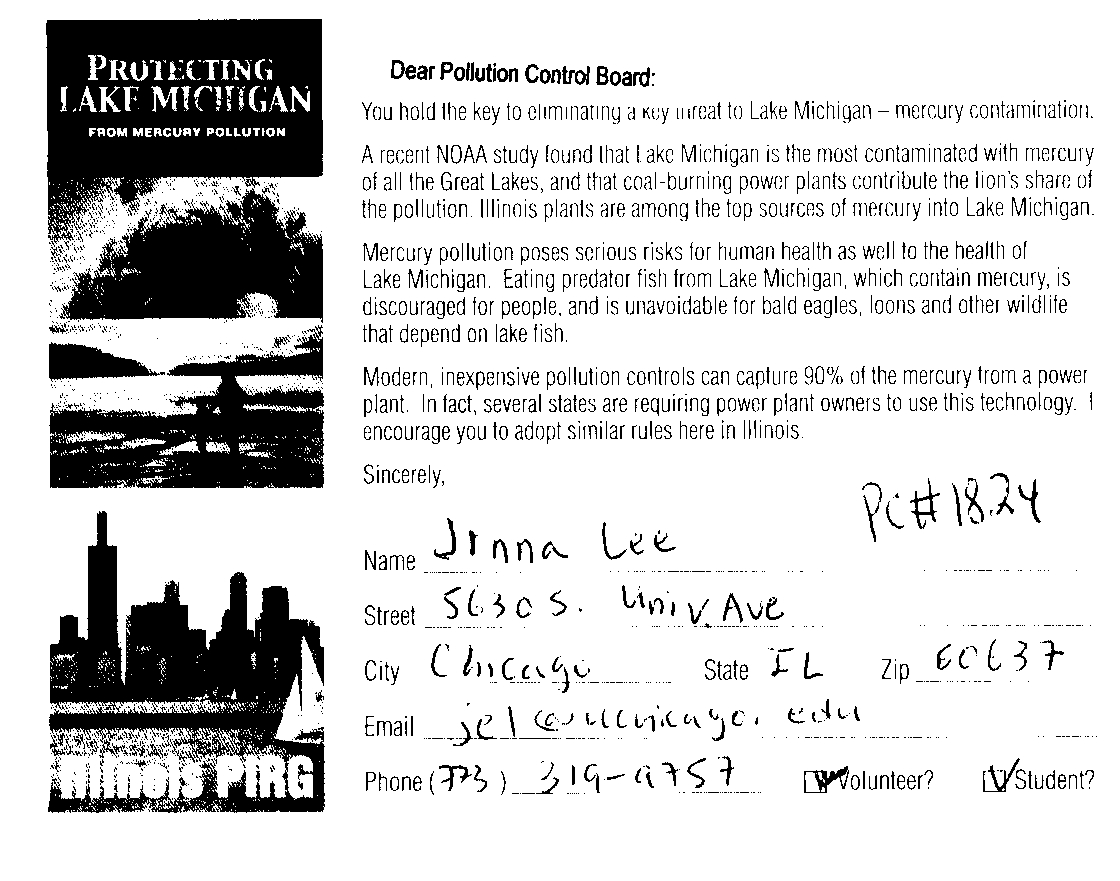 PROTECTING
LAKE MICHIGAN
FROM MERCURY POLLUTION
Dear Pollution Control Board:
You hold the key to eliminating a key threat to Lake Michigan – mercury contamination.
A recent NOAA study found that Lake Michigan is the most contaminated with mercury
of all the Great Lakes, and that coal-burning power plants contribute the lion's share of
the pollution. Illinois plants are among the top sources of mercury into Lake Michigan.
Mercury pollution poses serious risks for human health as well to the health of
Lake Michigan. Eating predator fish from Lake Michigan, which contain mercury, is
discouraged for people, and is unavoidable for bald eagles, loons and other wildlife
that depend on lake fish.
Modern, inexpensive pollution controls can capture 90% of the mercury from a power
plant. In fact, several states are requiring power plant owners to use this technology. I
encourage you to adopt similar rules here in Illinois.
Sincerely,
PC#1824
Name Jinna Lee
Street 5630 S. Univ Ave
City Chicago State IL Zip 60637
Email @uchicago.edu
Phone (773) 319-9757 Volunteer? Student?
Illinois PIRG